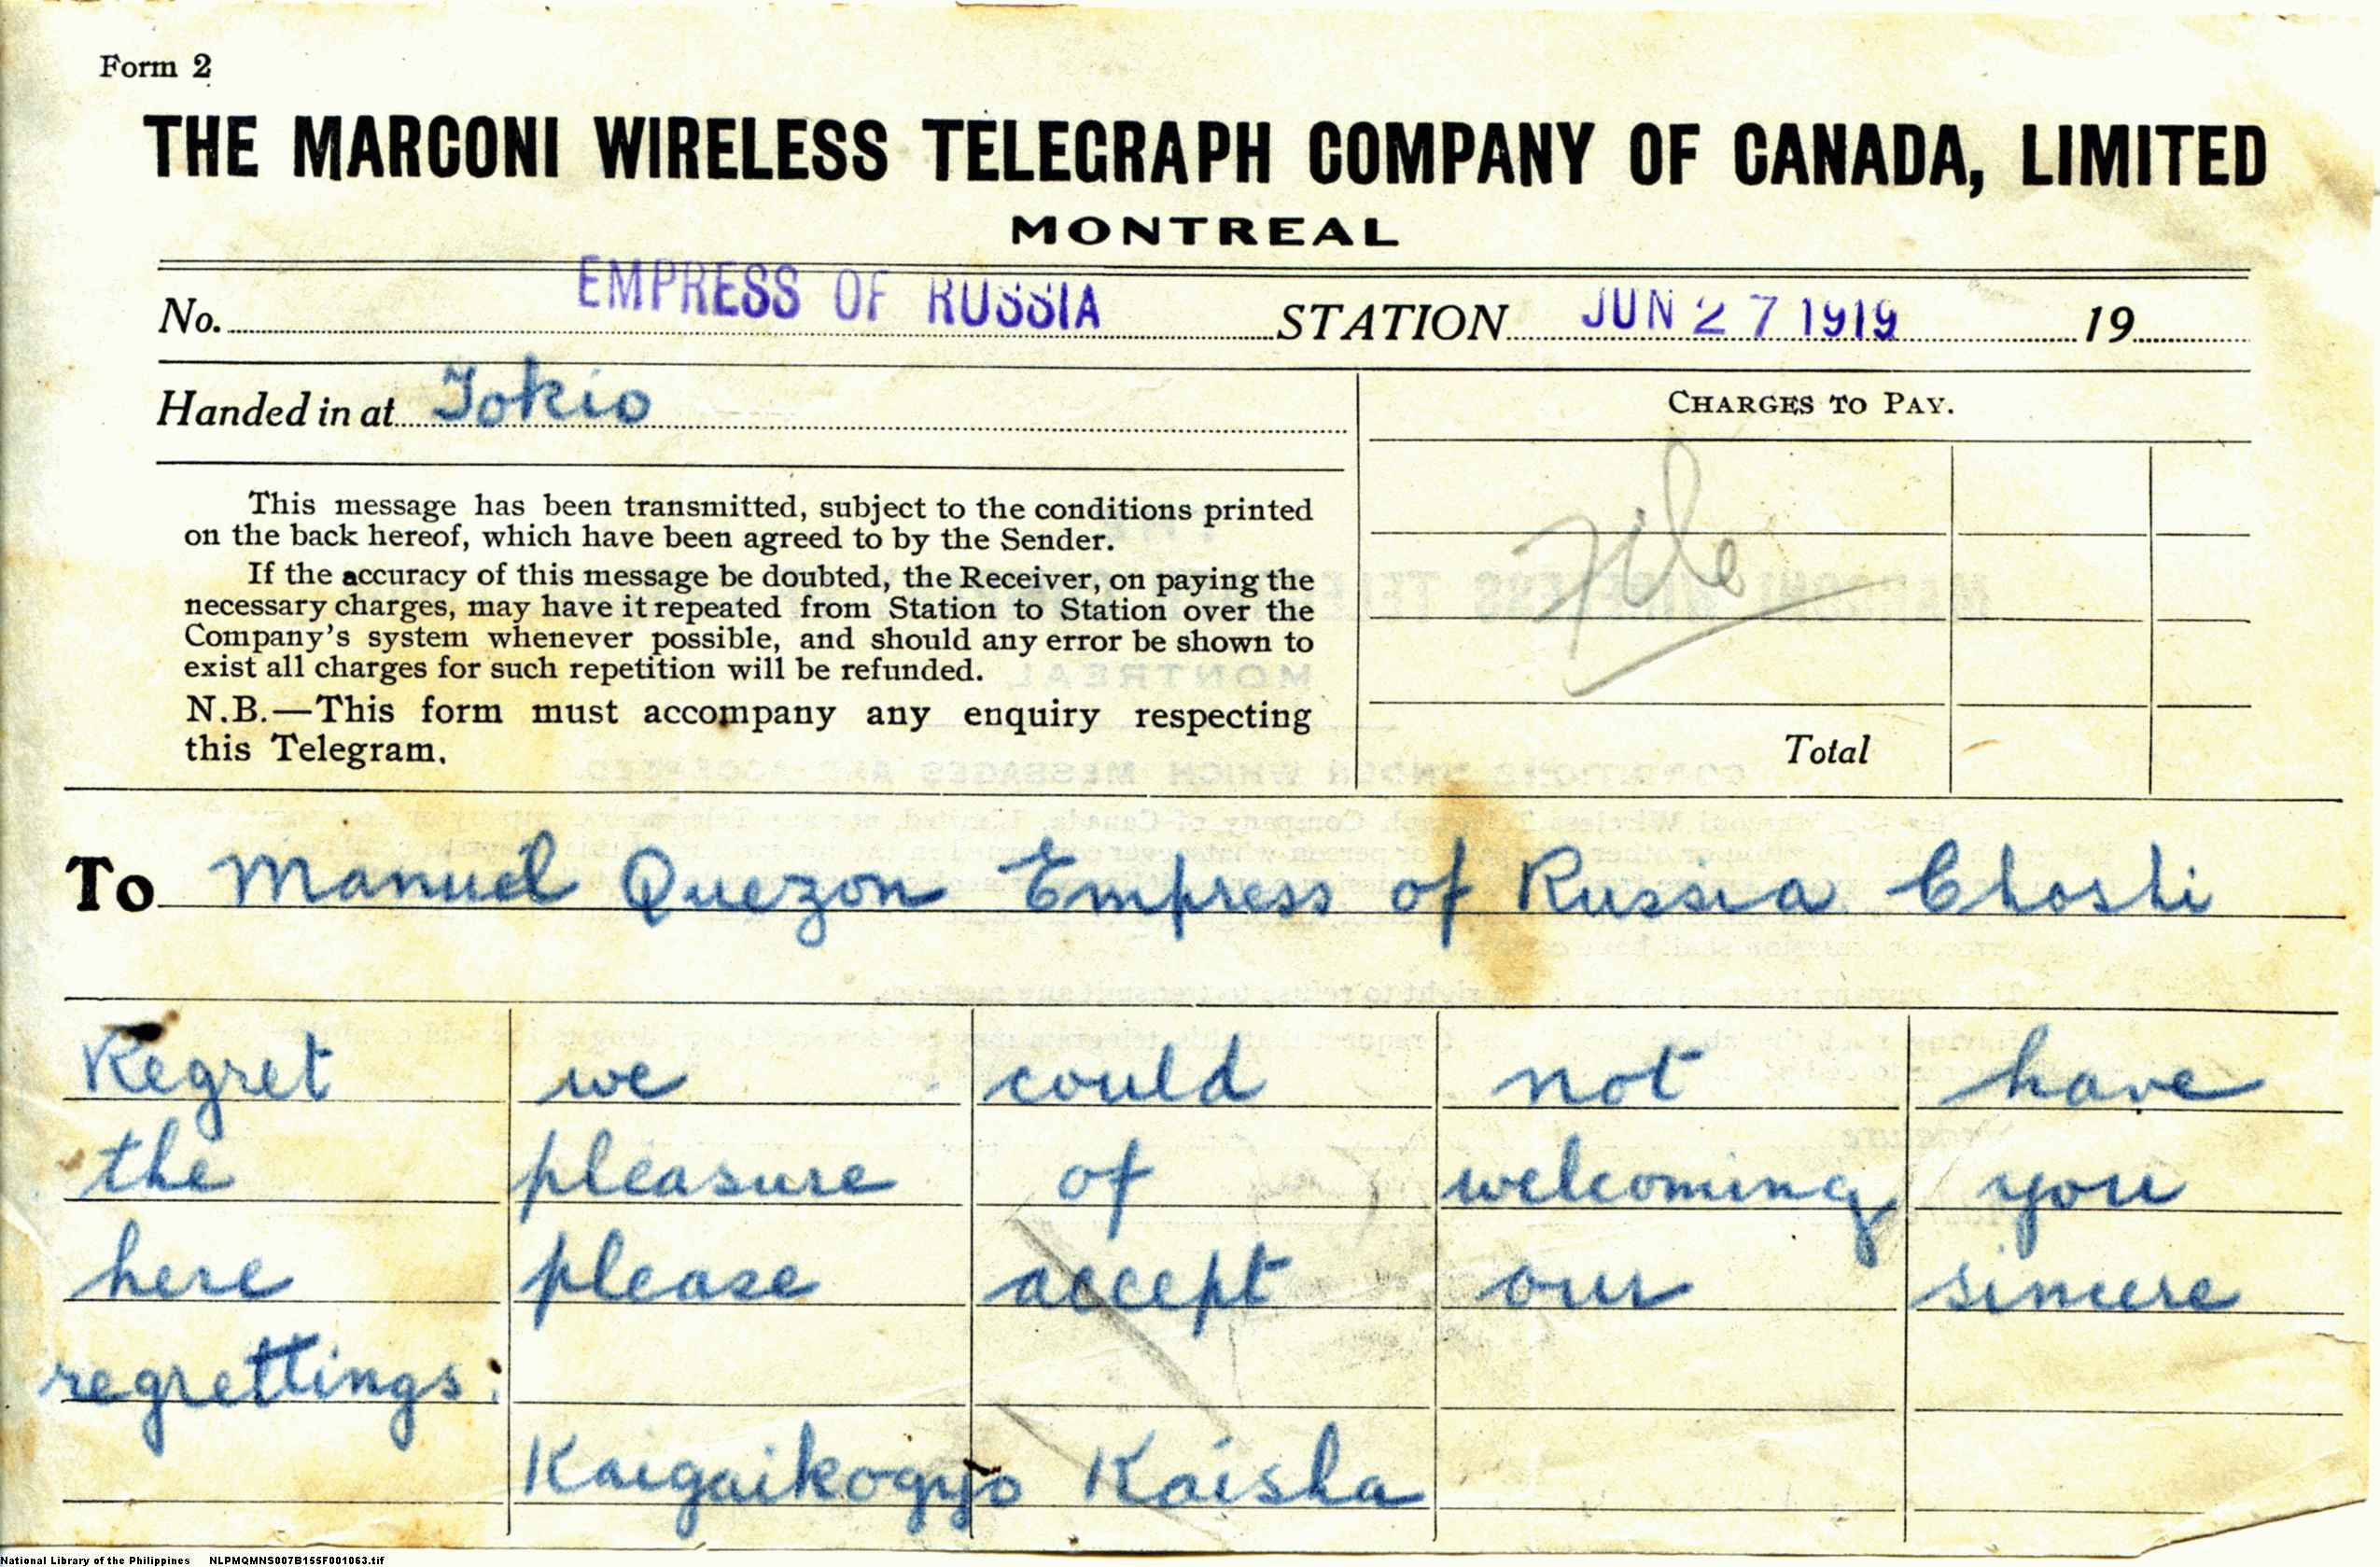 Form 2
THE MARCONI WIRELESS TELEGRAPH COMPANY OF CANADA, LIMITED
MONTREAL
No. EMPRESS OF RUSSIA STATION JUN 27 1919 19
Handed in at Tokio
CHARGES TO PAY.
This message has been transmitted, subject to the conditions printed
on the back hereof, which have been agreed to by the Sender.
If the accuracy of this message be doubted, the Receiver, on paying the
necessary charges, may have it repeated from Station to Station over the
Company's system whenever possible, and should any error be shown to
exist all charges for such repetition will be refunded.
N.B.—This form must accompany any enquiry respecting
this Telegram.
File
Total
To Manuel Quezon Empress of Russia Choshi
Regret we could not have
the pleasure of welcoming you
here please accept our sincere
regrettings.
Kaigaikogyo Kaisha
National Library of the Philippines NLPMQMNS007B155F001063.tif